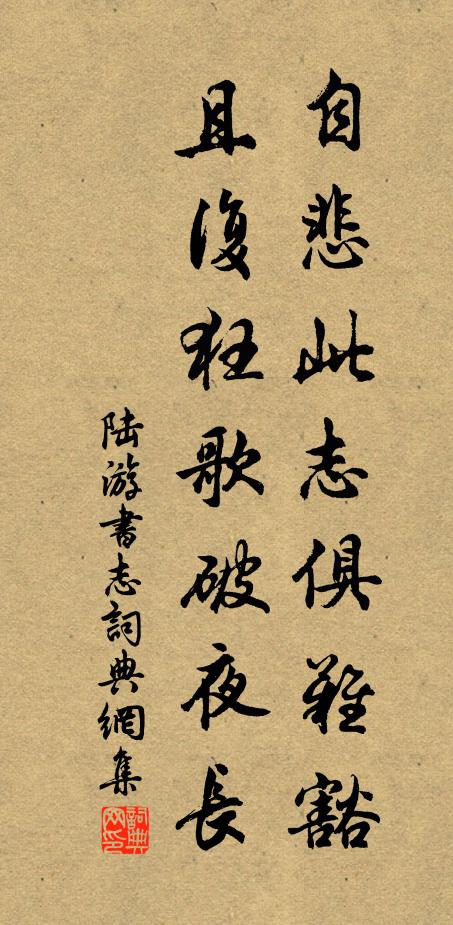 自悲此志俱難豁
且復狂歌破夜長
陆游書志詞典網集
詞典網印